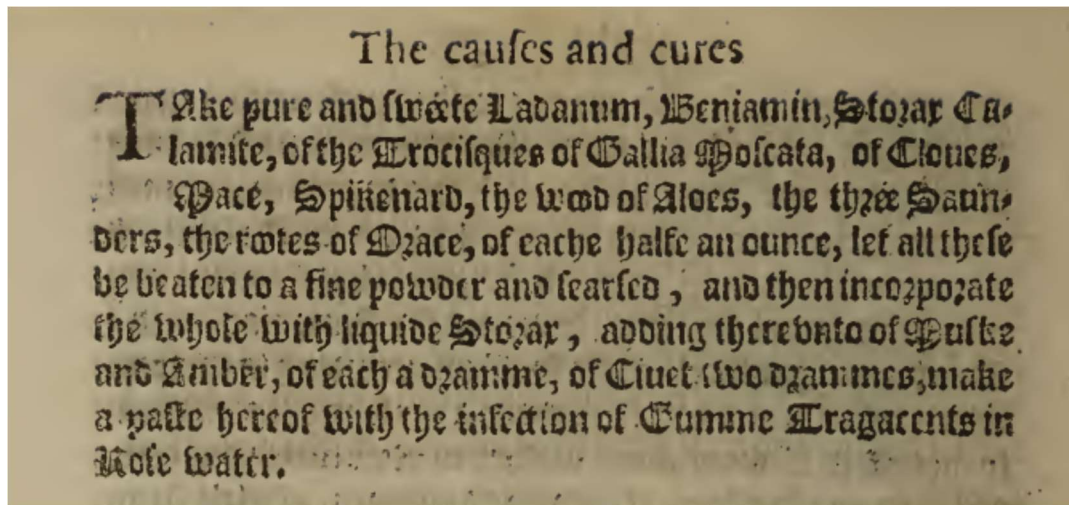 The cauſes and cures
TAke pure and ſweete Ladanum, Beniamin, Storax Ca-
lamite, of the Trociſques of Gallia Moſcata, of Cloues,
Mace, Spikenard, the wood of Aloes, the three Saun-
ders, the rootes of Orace, of eache halfe an ounce, let all theſe
be beaten to a fine powder and ſearſed, and then incorporate
the whole with liquide Storax, adding therevnto of Muſke
and Amber, of each a dramme, of Ciuet two drammes, make
a paſte hereof with the infection of Gumme Tragacents in
Roſe water.